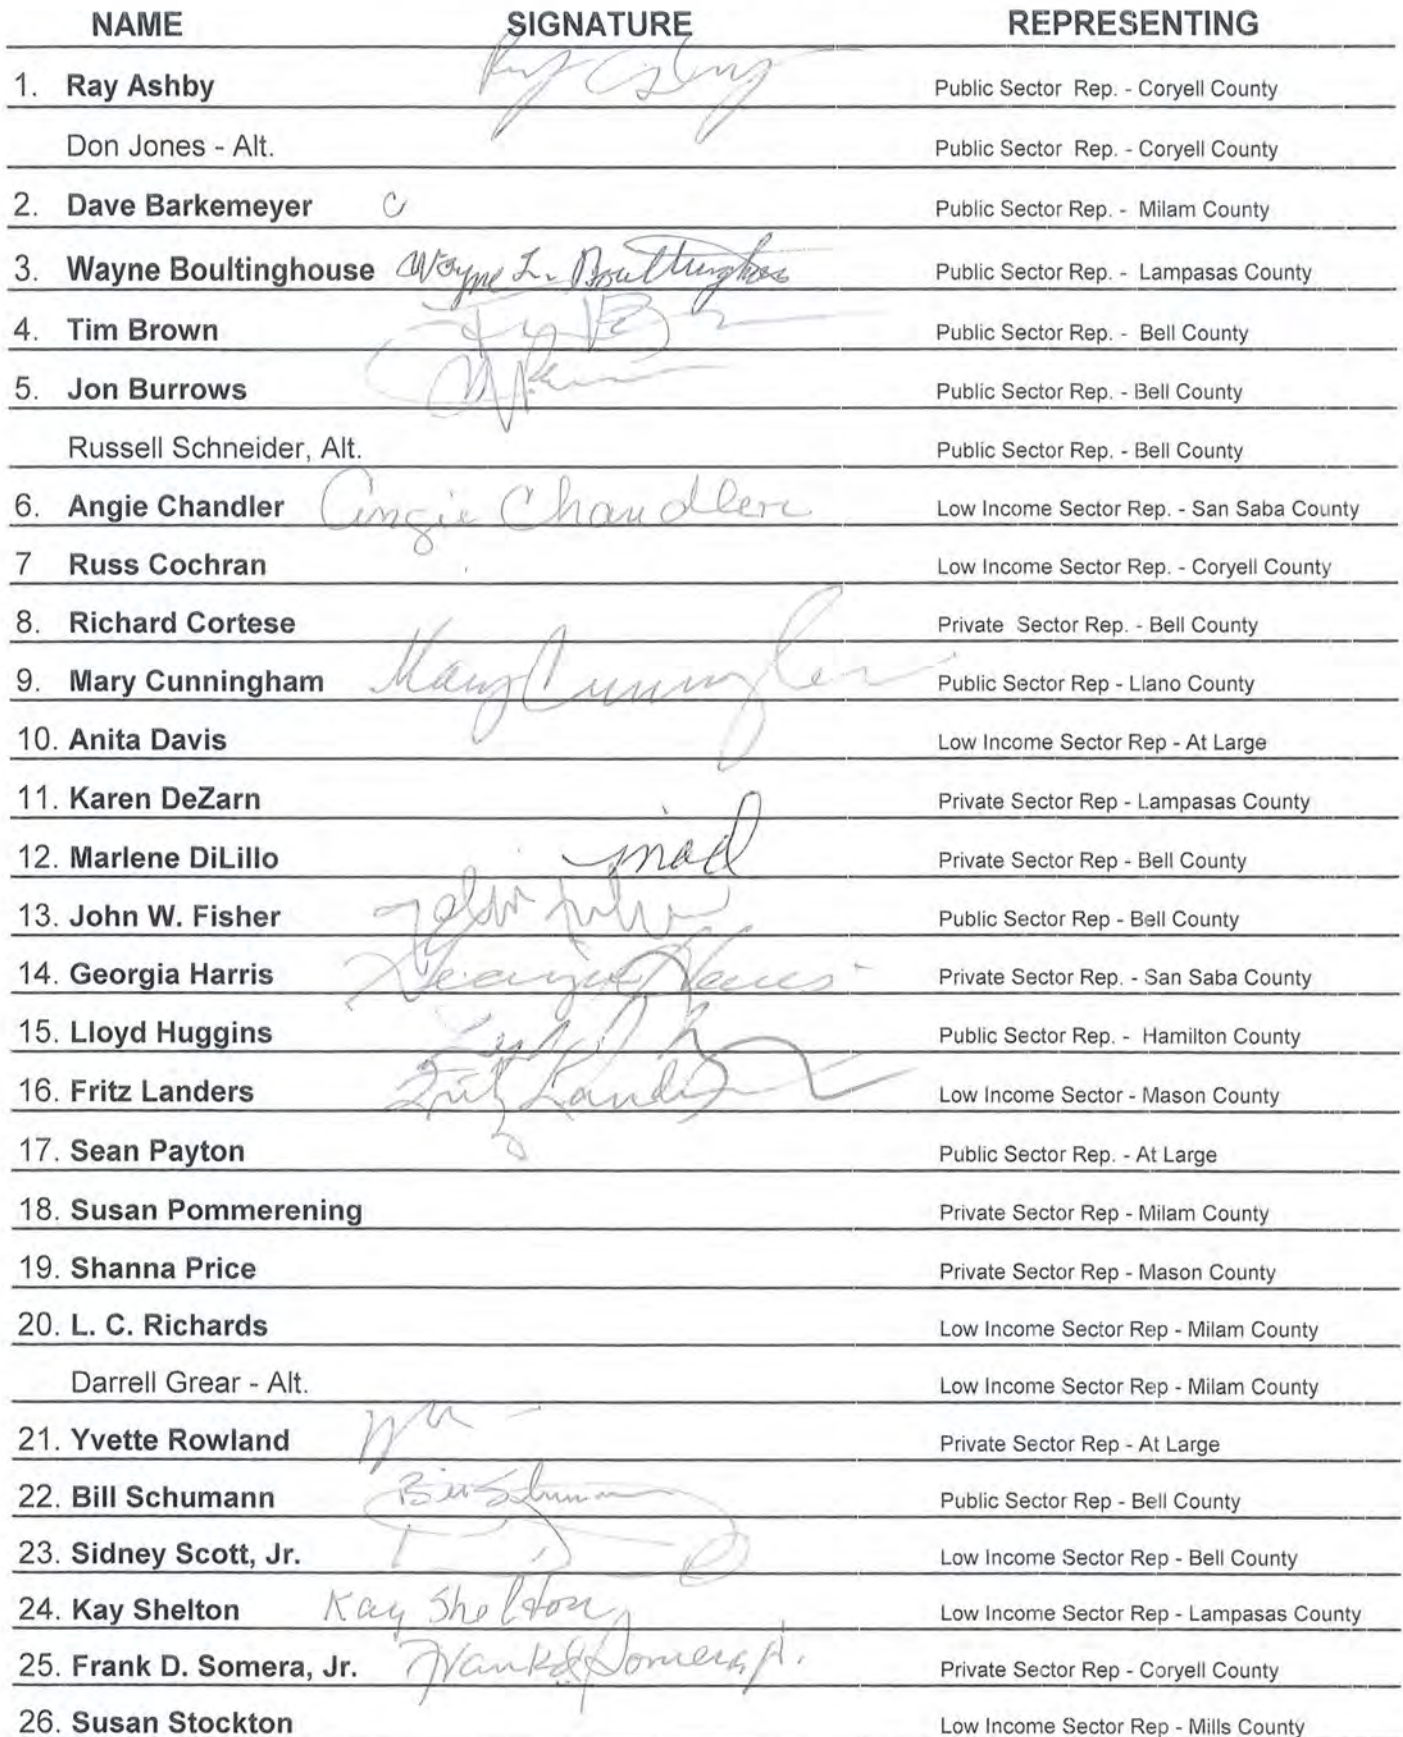 NAME SIGNATURE REPRESENTING
1. Ray Ashby Public Sector Rep. - Coryell County
Don Jones - Alt. Public Sector Rep. - Coryell County
2. Dave Barkemeyer Public Sector Rep. - Milam County
3. Wayne Boultinghouse Wayne L. Boultinghouse Public Sector Rep. - Lampasas County
4. Tim Brown Public Sector Rep. - Bell County
5. Jon Burrows Public Sector Rep. - Bell County
Russell Schneider, Alt. Public Sector Rep. - Bell County
6. Angie Chandler Angie Chandler Low Income Sector Rep. - San Saba County
7 Russ Cochran Low Income Sector Rep. - Coryell County
8. Richard Cortese Private Sector Rep. - Bell County
9. Mary Cunningham Mary Cunningham Public Sector Rep - Llano County
10. Anita Davis Low Income Sector Rep - At Large
11. Karen DeZarn Private Sector Rep - Lampasas County
12. Marlene DiLillo mad Private Sector Rep - Bell County
13. John W. Fisher John Fisher Public Sector Rep - Bell County
14. Georgia Harris Georgia Harris Private Sector Rep. - San Saba County
15. Lloyd Huggins Public Sector Rep. - Hamilton County
16. Fritz Landers Fritz Landers Low Income Sector - Mason County
17. Sean Payton Public Sector Rep. - At Large
18. Susan Pommerening Private Sector Rep - Milam County
19. Shanna Price Private Sector Rep - Mason County
20. L. C. Richards Low Income Sector Rep - Milam County
Darrell Grear - Alt. Low Income Sector Rep - Milam County
21. Yvette Rowland Private Sector Rep - At Large
22. Bill Schumann Bill Schumann Public Sector Rep - Bell County
23. Sidney Scott, Jr. Low Income Sector Rep - Bell County
24. Kay Shelton Kay Shelton Low Income Sector Rep - Lampasas County
25. Frank D. Somera, Jr. Frank D Somera, Jr. Private Sector Rep - Coryell County
26. Susan Stockton Low Income Sector Rep - Mills County